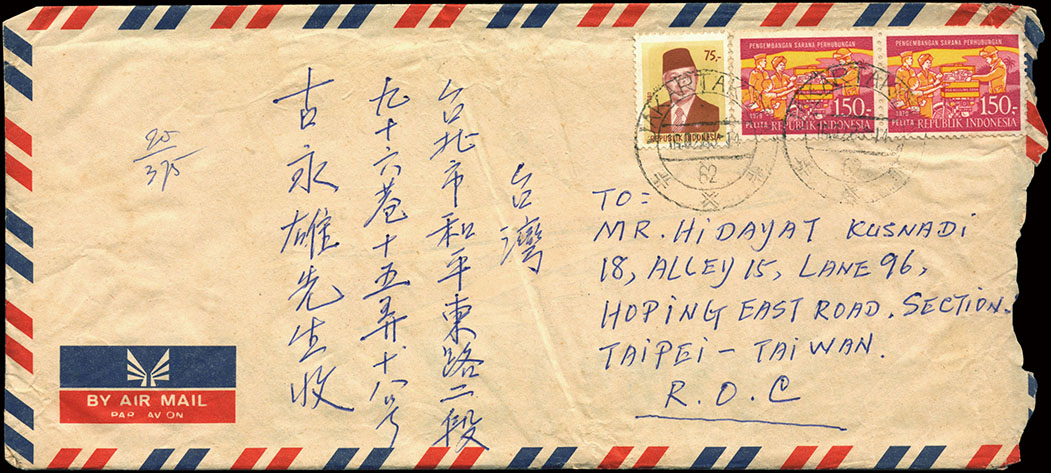 75,-
REPUBLIK INDONESIA
PENGEMBANGAN SARANA PERHUBUNGAN
150.-
1979
PELITA REPUBLIK INDONESIA
PENGEMBANGAN SARANA PERHUBUNGAN
150.-
1979
PELITA REPUBLIK INDONESIA
82
台灣
台北市和平東路二段
九十六巷十五弄十八号
古永雄先生收
20
375
TO:
MR. HIDAYAT KUSNADI
18, ALLEY 15, LANE 96,
HOPING EAST ROAD. SECTION.
TAIPEI - TAIWAN.
R.O.C
BY AIR MAIL
PAR AVION